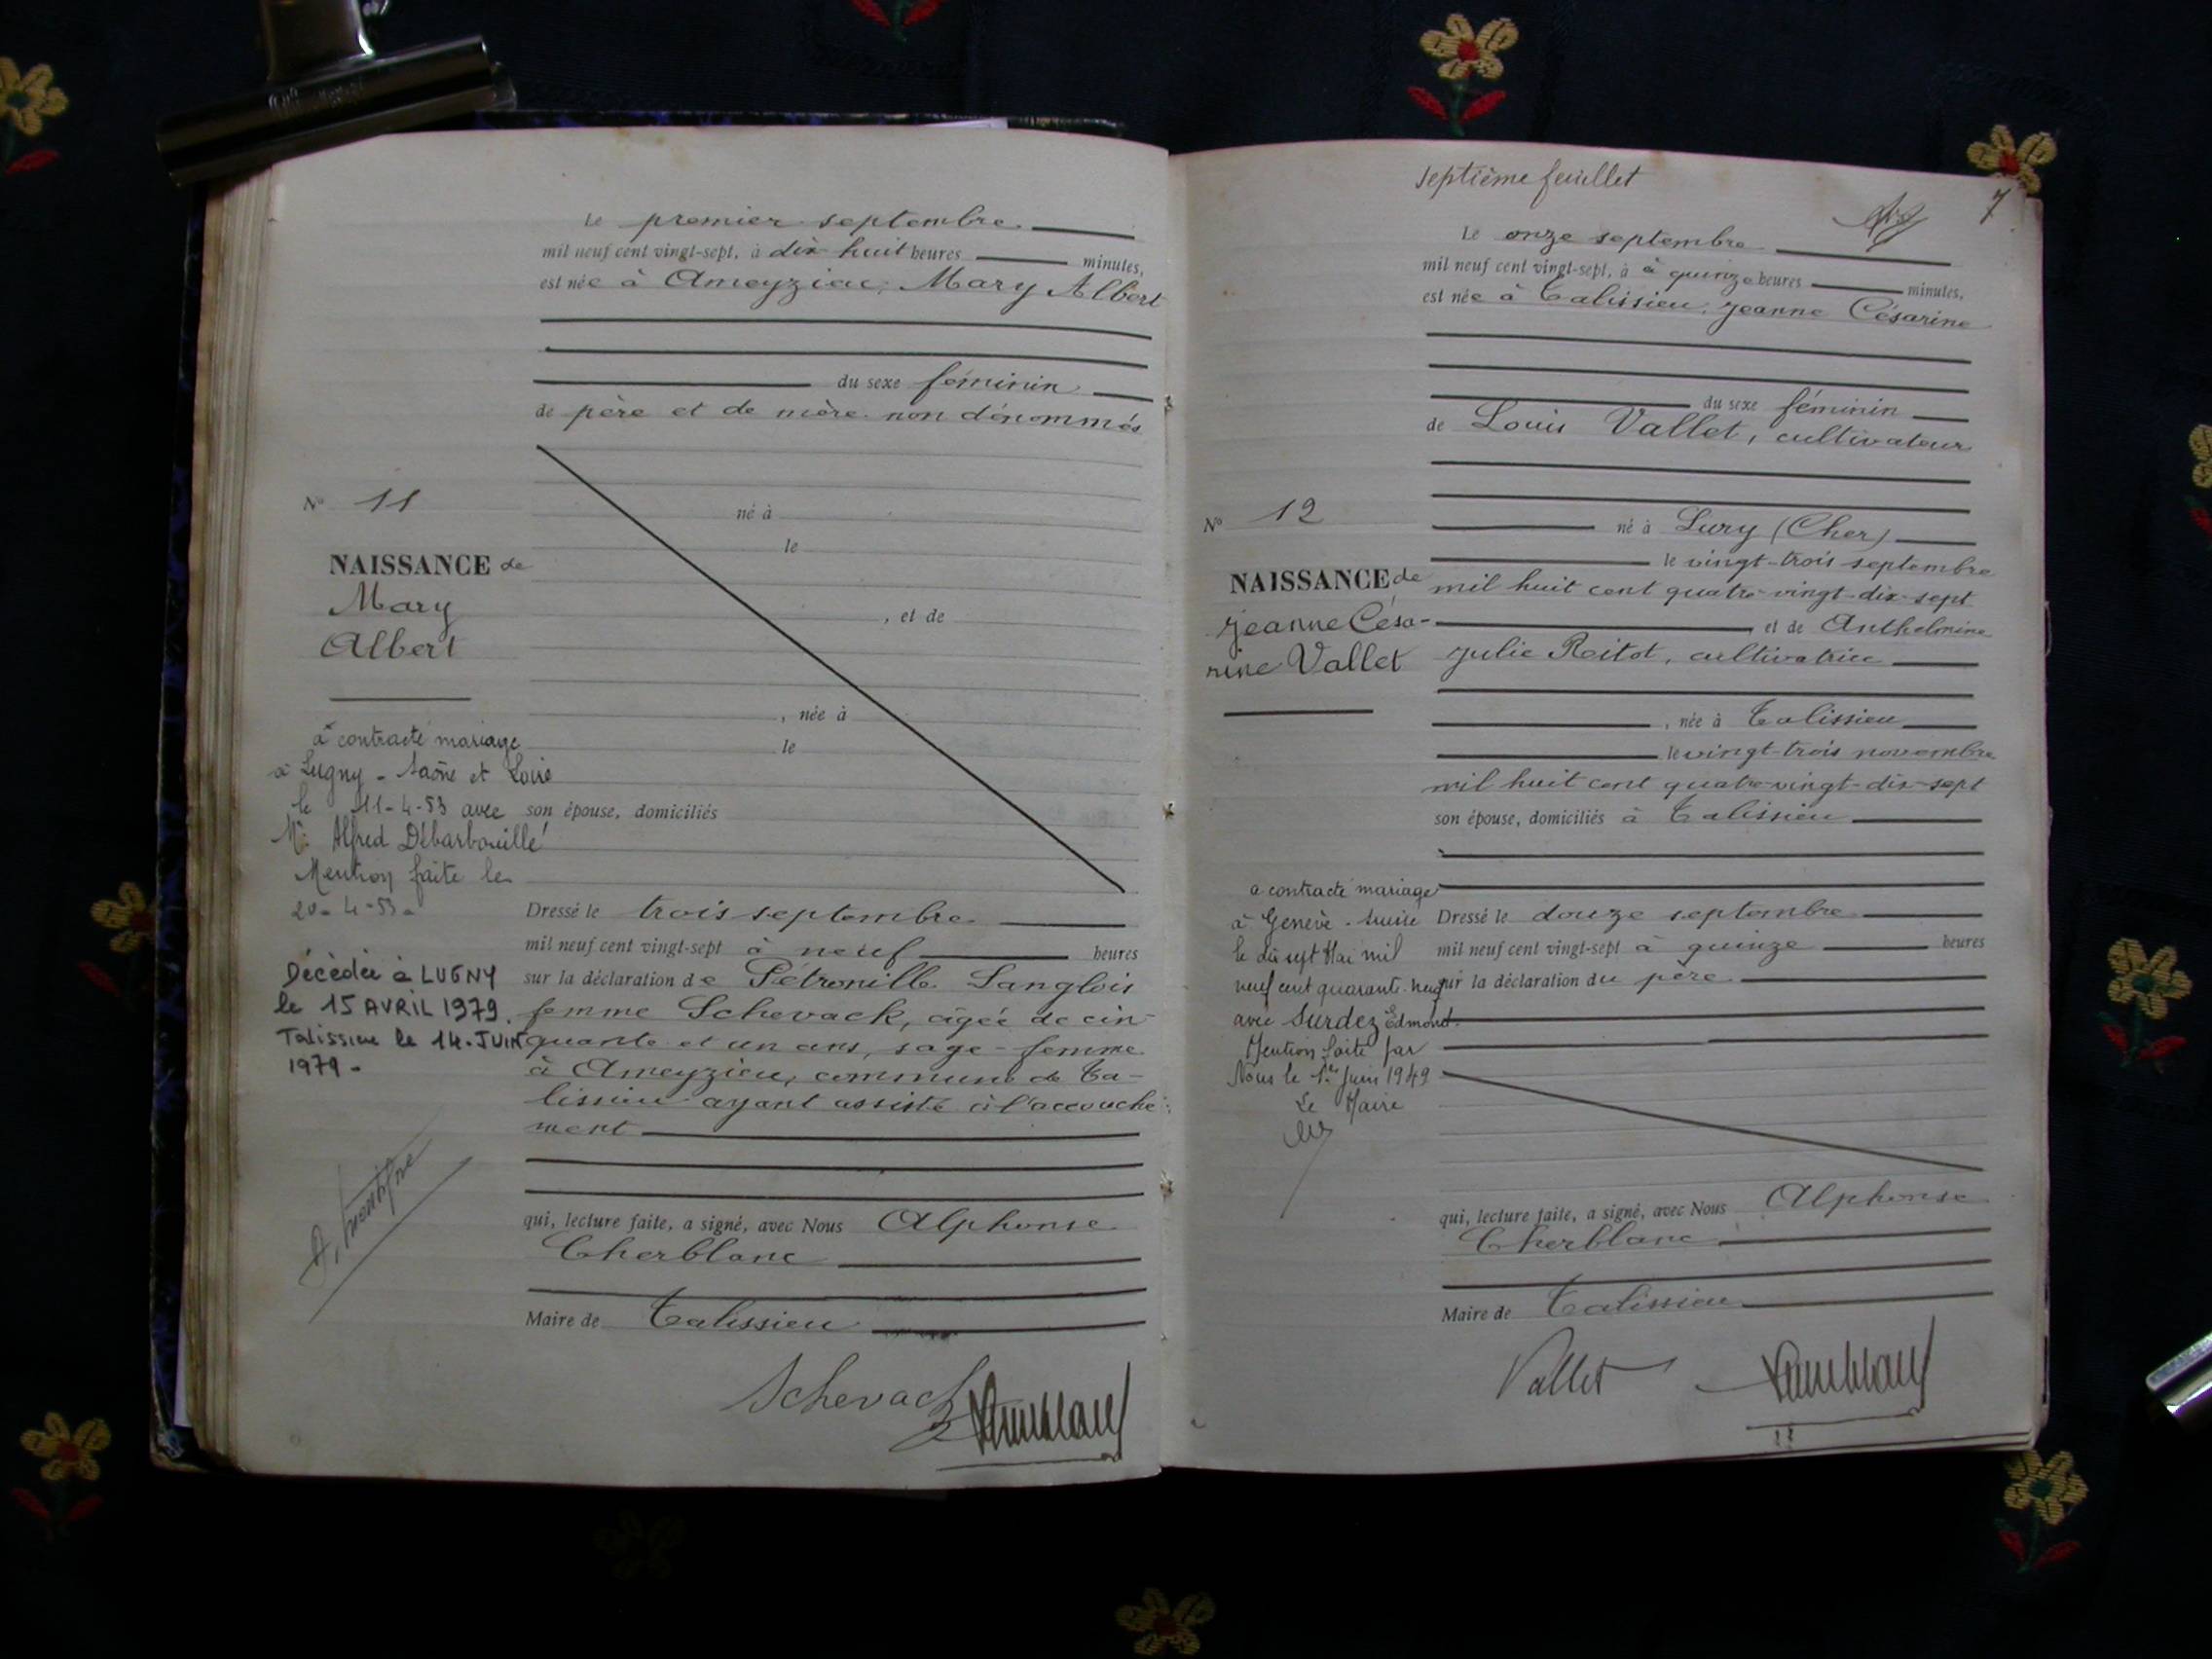 Le premier septembre
mil neuf cent vingt-sept, à dix huit heures minutes,
est née à Ameyzieu, Mary Albert
du sexe féminin
de père et de mère non dénommés
né à
le
, et de
, née à
le
son épouse, domiciliés
Dressé le trois septembre
mil neuf cent vingt-sept à neuf heures
sur la déclaration de Pétronille Langlois
femme Schevack, âgée de cin-
quante et un ans, sage-femme
à Ameyzieu, commune de Ta-
lissieu ayant assisté à l'accouche-
ment
qui, lecture faite, a signé, avec Nous Alphonse
Cherblanc
Maire de Talissieu
Schevack
N° 11
NAISSANCE de
Mary
Albert
a contracté mariage
à Lugny - Saône et Loire
le 11-4-53 avec
Mr. Alfred Débarbouillé
Mention faite le
20-4-53-
Décédée à LUGNY
le 15 AVRIL 1979.
Talissieu le 14. JUIN
1979-
Septième feuillet
7
Le onze septembre
mil neuf cent vingt-sept, à à quinze heures minutes,
est née à Talissieu, Jeanne Césarine
du sexe féminin
de Louis Vallet, cultivateur
né à Lury (Cher)
le vingt-trois septembre
mil huit cent quatre-vingt-dix-sept
et de Anthelmine
Julie Reitot, cultivatrice
, née à Talissieu
le vingt-trois novembre
mil huit cent quatre-vingt-dix-sept
son épouse, domiciliés à Talissieu
Dressé le douze septembre
mil neuf cent vingt-sept à quinze heures
sur la déclaration du père
qui, lecture faite, a signé, avec Nous Alphonse
Cherblanc
Maire de Talissieu
Vallet
N° 12
NAISSANCE de
Jeanne Césa-
rine Vallet
a contracté mariage
à Genève - Suisse
le dix sept Mai mil
neuf cent quarante-neuf
avec Surdez Edmond.
Mention faite par
Nous le 1er Juin 1949
Le Maire